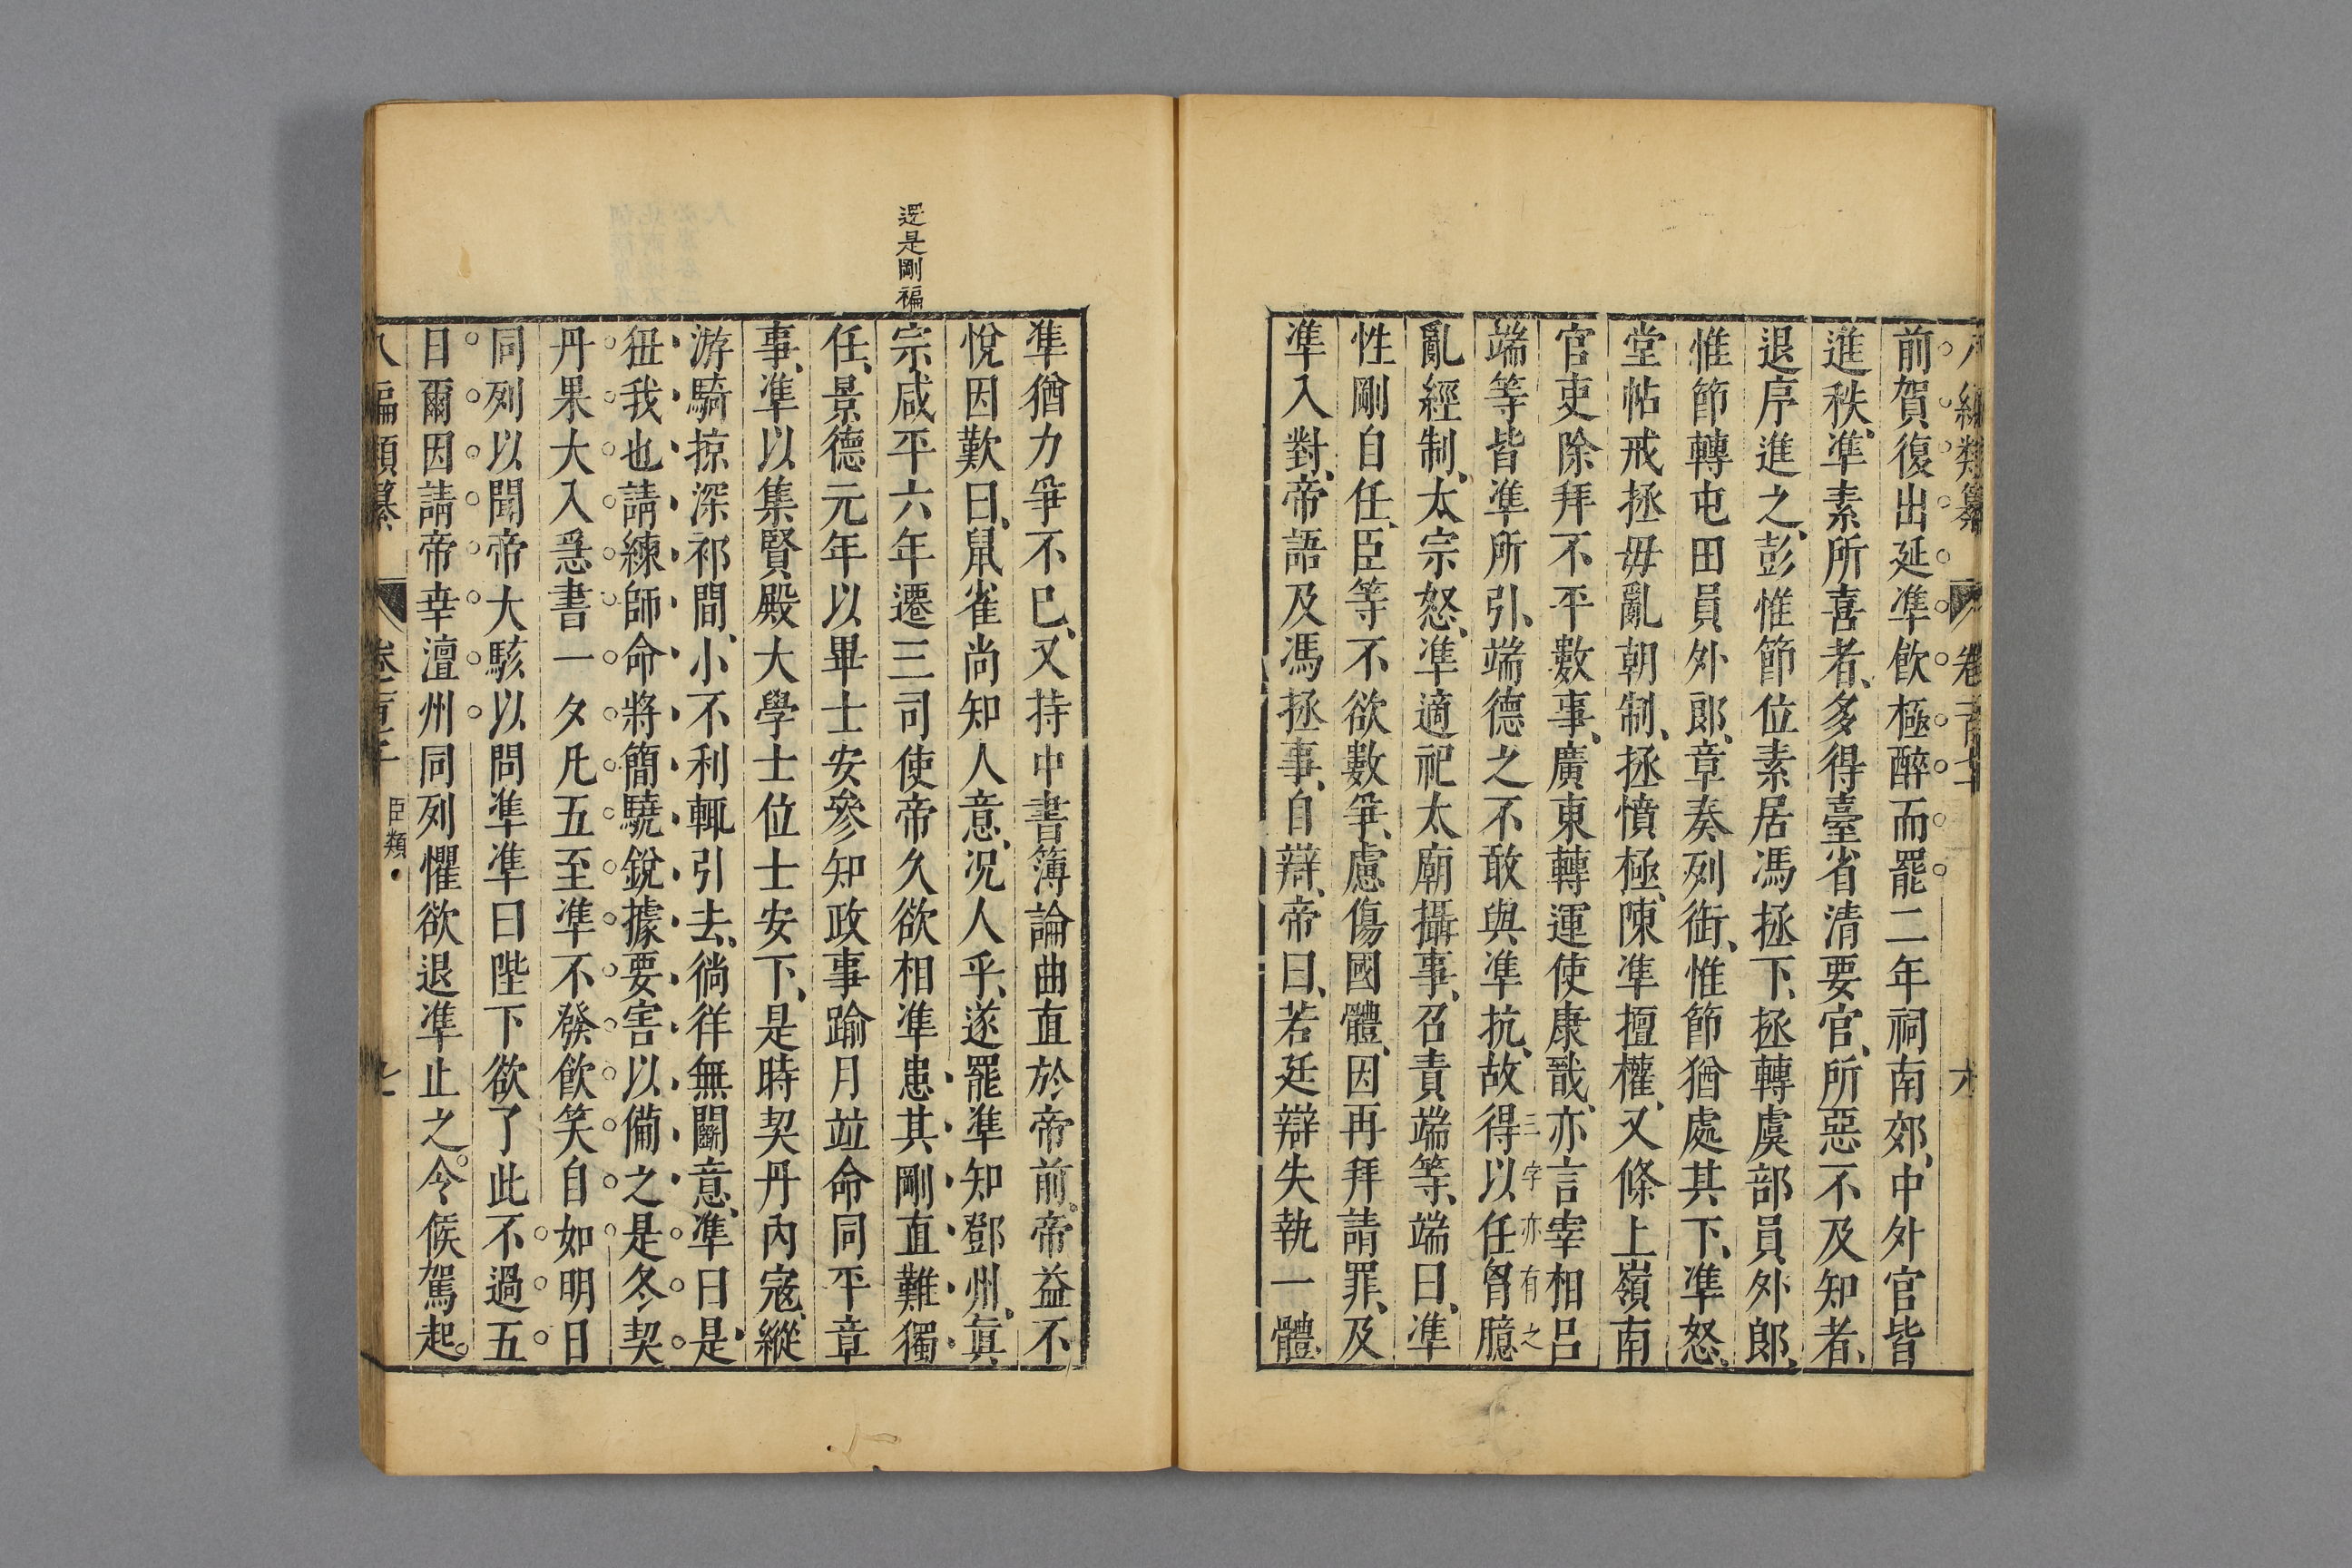 八編類纂 卷百七 六
前賀復出延準飲極醉而罷二年祠南郊中外官皆
進秩準素所喜者多得臺省清要官所惡不及知者
退序進之彭惟節位素居馮拯下拯轉虞部員外郎
惟節轉屯田員外郎章奏列銜惟節猶處其下準怒
堂帖戒拯毋亂朝制拯憤極陳準擅權又條上嶺南
官吏除拜不平數事廣東轉運使康戩亦言宰相呂
三字亦有之
端等皆準所引端德之不敢與準抗故得以任胷臆
亂經制太宗怒準適祀太廟攝事召責端等端曰準
性剛自任臣等不欲數爭慮傷國體因再拜請罪及
準入對帝語及馮拯事自辯帝曰若廷辯失執一體
準猶力爭不已又持中書簿論曲直於帝前帝益不
悅因歎曰鼠雀尚知人意况人乎遂罷準知鄧州眞
還是剛褊
宗咸平六年遷三司使帝久欲相準患其剛直難獨
任景德元年以畢士安參知政事踰月竝命同平章
事準以集賢殿大學士位士安下是時契丹內寇縱
游騎掠深祁間小不利輒引去徜徉無鬭意準曰是
狃我也請練師命將簡驍銳據要害以備之是冬契
丹果大入急書一夕凡五至準不發飲笑自如明日
同列以聞帝大駭以問準準曰陛下欲了此不過五
日爾因請帝幸澶州同列懼欲退準止之令候駕起
八編類纂 卷百 臣類 七